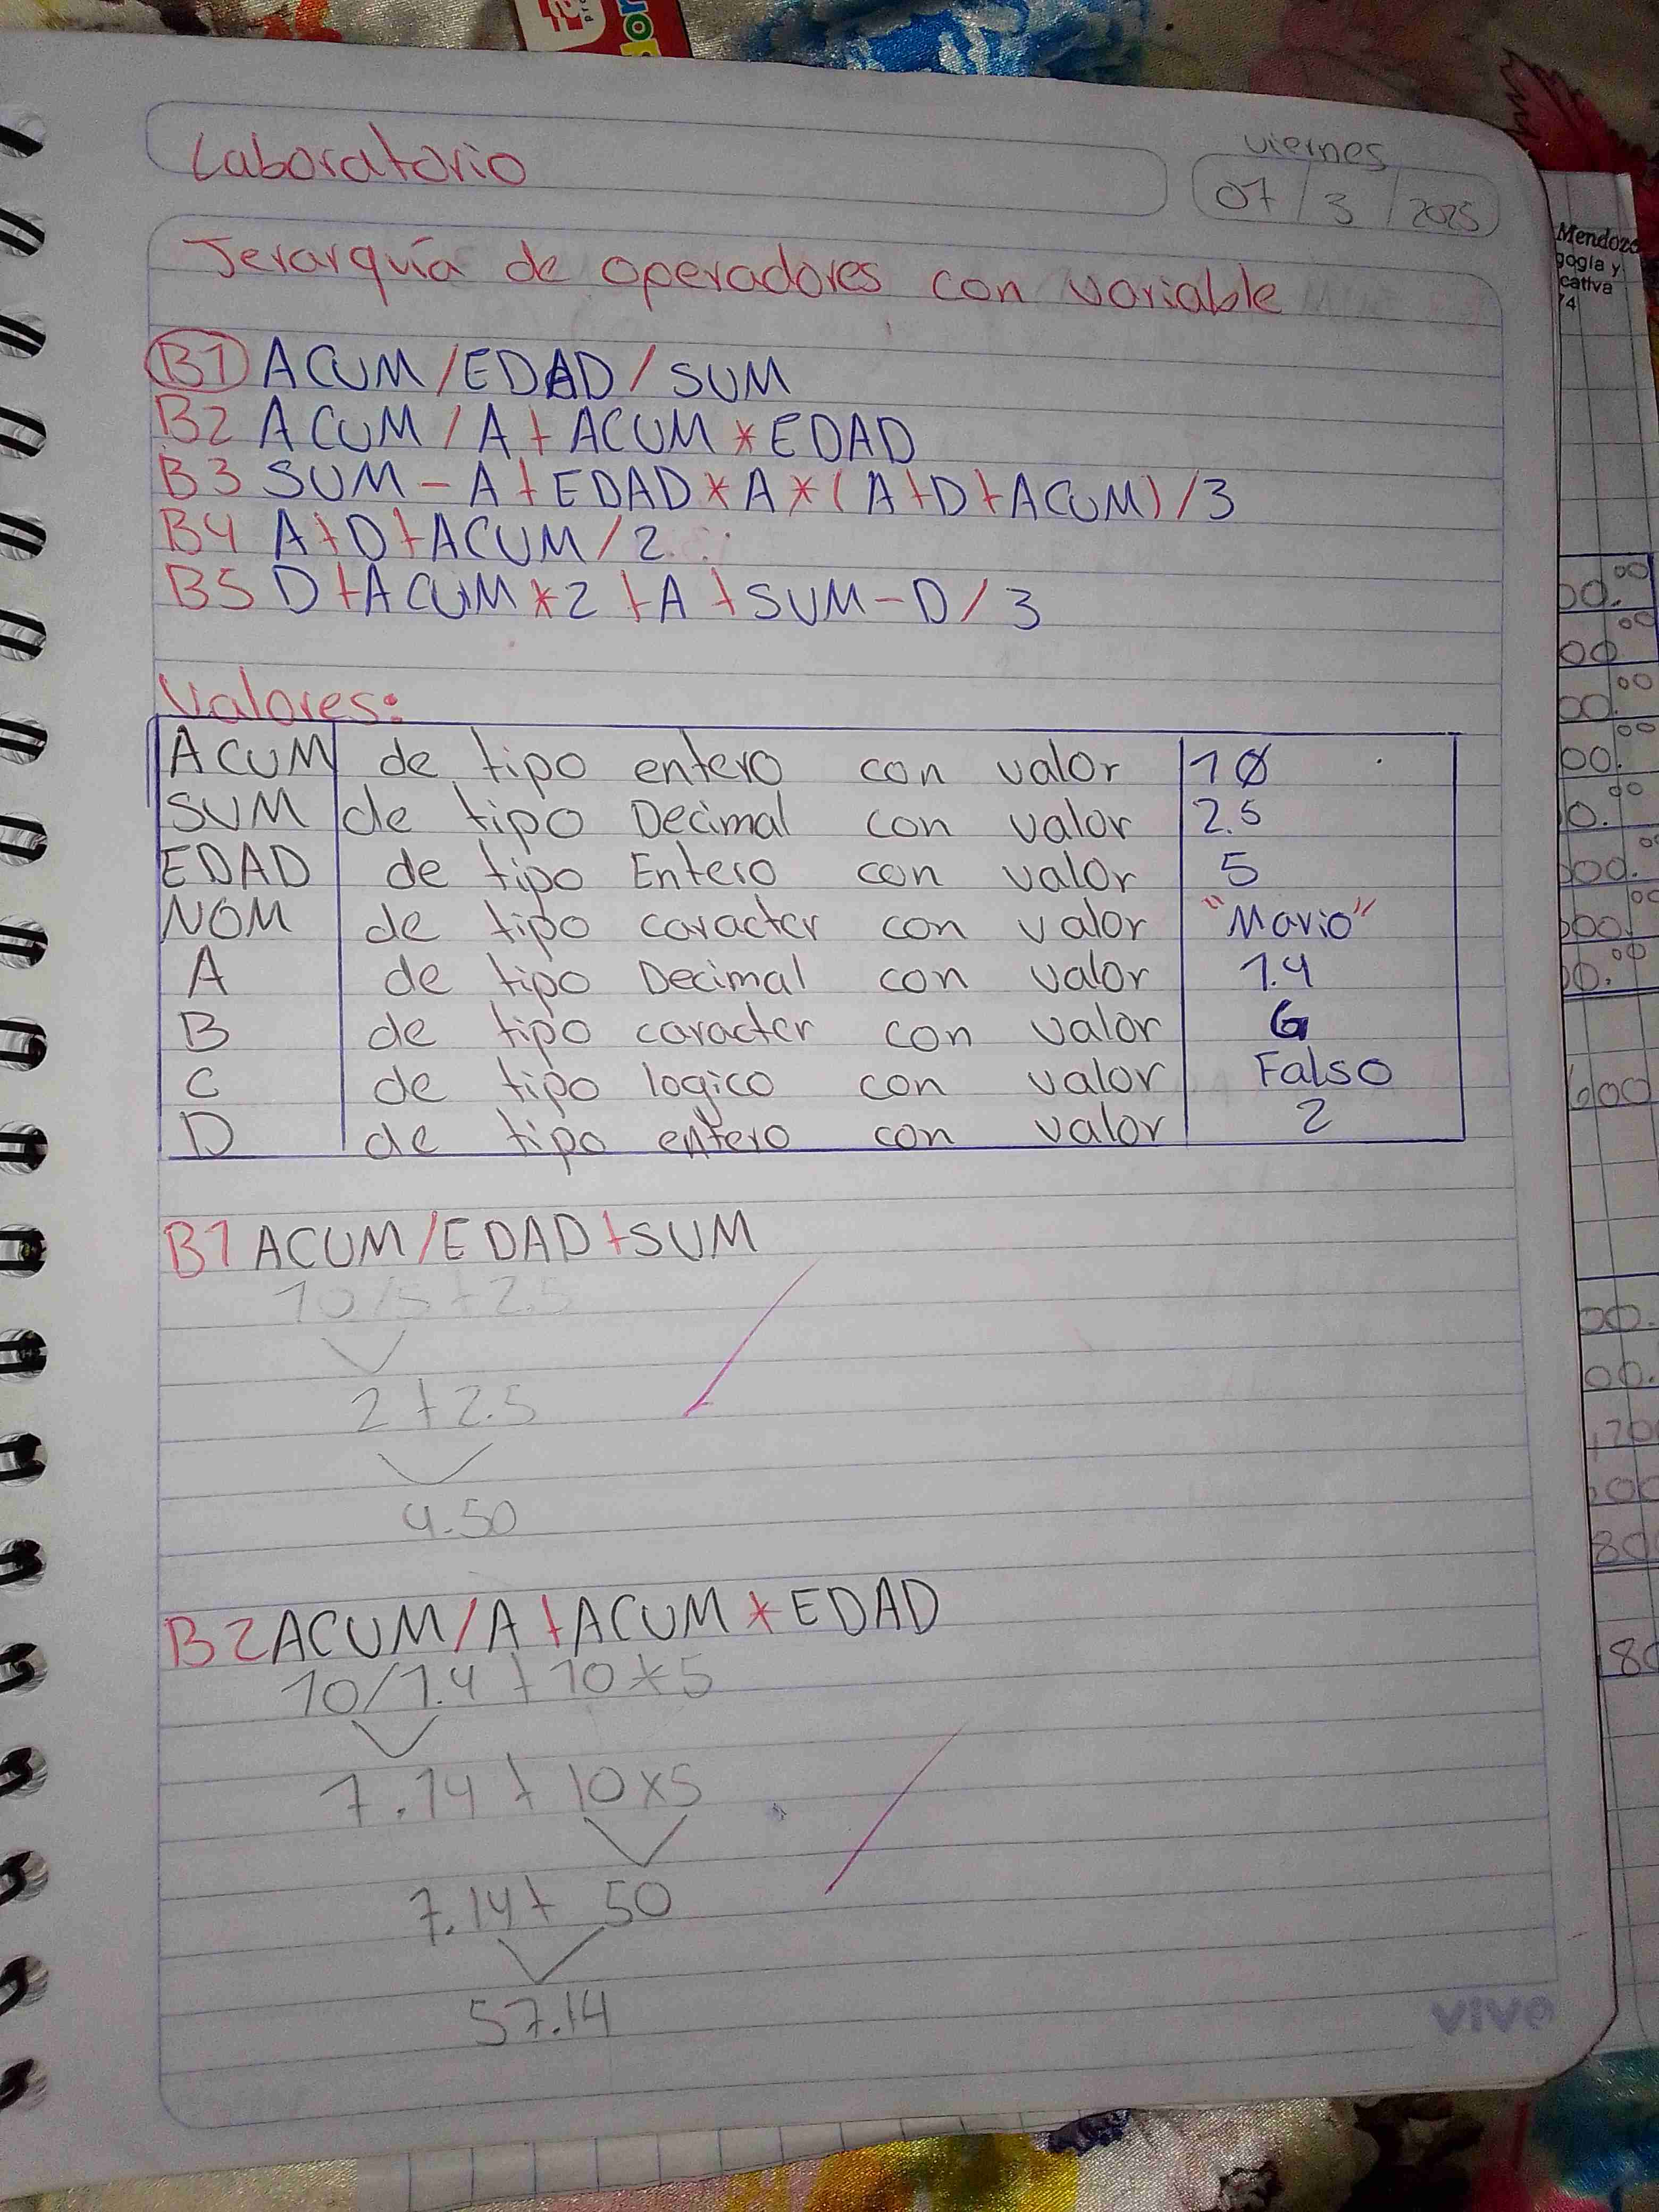 Laboratorio
viernes
07/3/2025
Jerarquía de operadores con variable
B1 ACUM/EDAD/SUM
B2 ACUM/A+ACUM*EDAD
B3 SUM-A+EDAD*A*(A+D+ACUM)/3
B4 A+D+ACUM/2
B5 D+ACUM*2+A+SUM-D/3
Valores:
ACUM de tipo entero con valor 10
SUM de tipo Decimal con valor 2.5
EDAD de tipo Entero con valor 5
NOM de tipo caracter con valor "Mario"
A de tipo Decimal con valor 1.4
B de tipo caracter con valor G
C de tipo logico con valor Falso
D de tipo entero con valor 2
B1 ACUM/EDAD+SUM
10/5+2.5
2+2.5
4.50
B2 ACUM/A+ACUM*EDAD
10/1.4+10*5
7.14+10x5
7.14+50
57.14
vivo
Mendoza